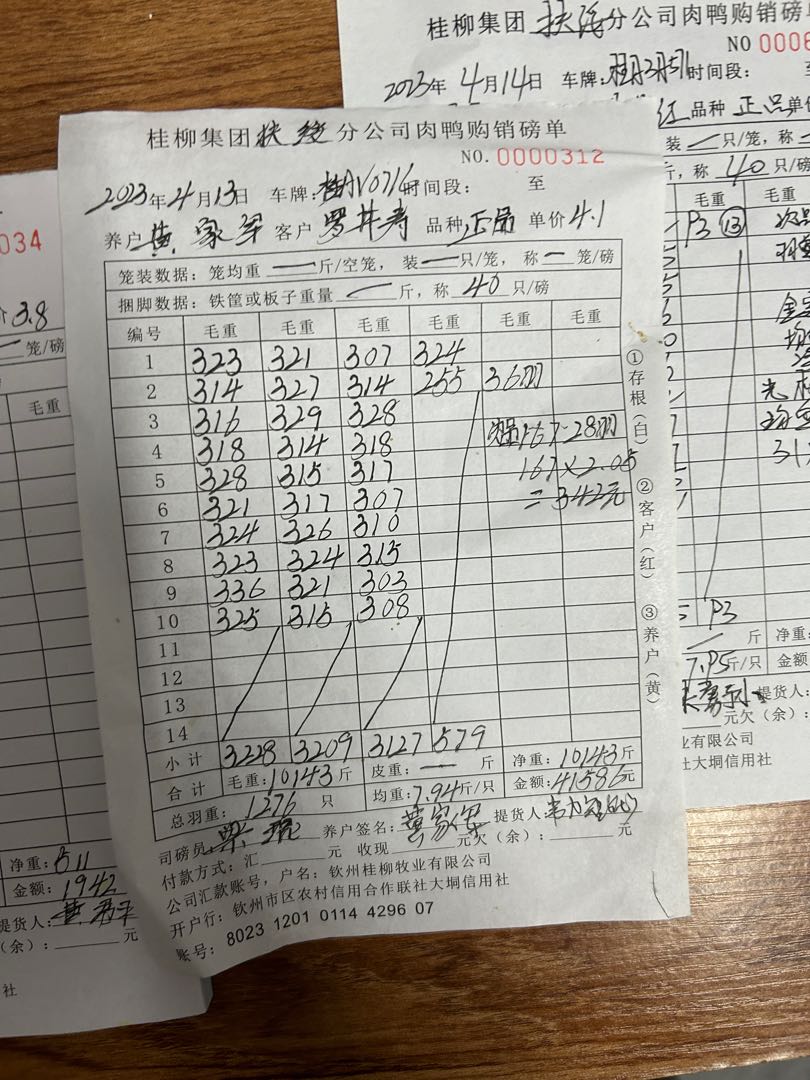 桂柳集团扶绥分公司肉鸭购销磅单
NO. 0000312
2023年4月13日 车牌:桂AV0716 时间段: 至
养户 黄家军 客户 罗井寿 品种 正品 单价 4.1
笼装数据: 笼均重 一 斤/空笼, 装 一 只/笼, 称 一 笼/磅
捆脚数据: 铁筐或板子重量 一 斤, 称 40 只/磅
编号 毛重 毛重 毛重 毛重 毛重 毛重
1 323 321 307 324
2 314 327 314 255 36羽
3 316 329 328
4 318 314 318 167-28羽
5 328 315 317 167×2.05
6 321 317 307 =342元
7 324 326 310
8 323 324 315
9 336 321 303
10 325 315 308
11
12
13
14
小计 3228 3209 3127 579
合计 毛重:10143斤 皮重: 一 斤 净重:10143斤
总羽重: 1276 只 均重:7.94斤/只 金额:41586元
司磅员: 养户签名:黄家军 提货人:
付款方式: 汇 元 收现 元欠(余): 元
公司汇款账号, 户名: 钦州桂柳牧业有限公司
开户行: 钦州市区农村信用合作联社大垌信用社
账号: 8023 1201 0114 4296 07
①存根(白) ②客户(红) ③养户(黄)
桂柳集团扶绥分公司肉鸭购销磅单
NO 0006
2023年4月14日 车牌: 时间段: 至
红 品种 正品 单价
装 一 只/笼, 称 一
斤, 称 40 只/磅
毛重 毛重
P3 ⑬
P3
斤 净重:
7.95斤/只 金额:
提货人:
元欠(余):
业有限公司
社大垌信用社
034
3.8
笼/磅
毛重
净重: 511
金额: 1942
提货人:
(余): 元
社